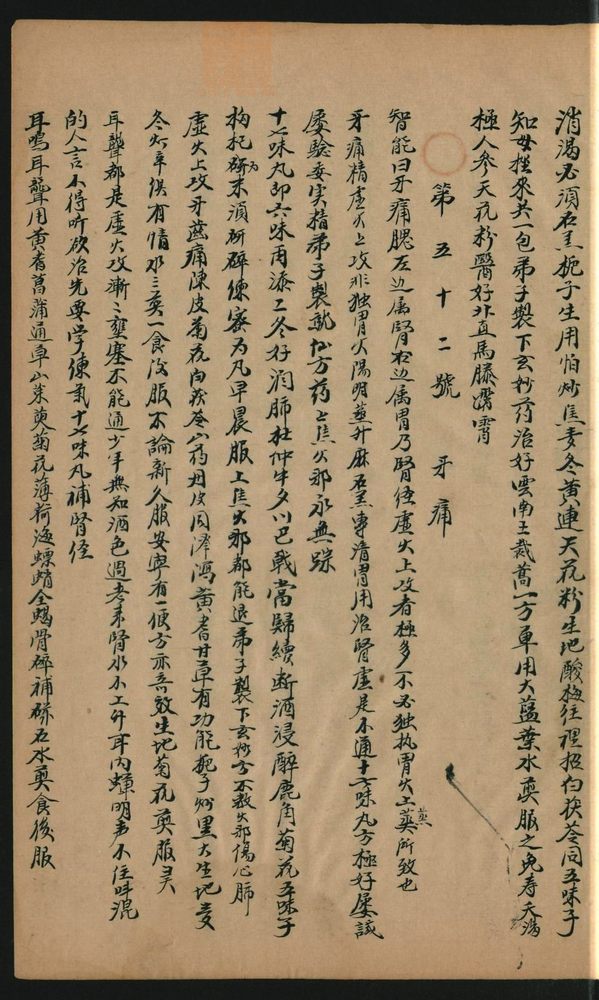 消渴必須石羔枙子生用怕炒焦麦冬黃連天花粉生地酸梅往裡招白茯苓同五味子
知母搓來共一包弟子製下玄妙药治好雲南王裁蒿一方單用大藍葉水煎服之免春天渴
極人參天花粉醫好外直馬藤霄
第五十二號 牙痛
智能曰牙痛腮左边属腎右边属胃乃腎經虛火上攻者極多不必独执胃火上蒸所致也
牙痛精虛火上攻非独胃火陽明蒸升麻石羔專清胃用治腎虛是不通十七味丸方極好屡試
屡驗妾実指弟子製就妙方药上焦火邪永無踪
十七味丸即六味再添二冬好润肺杜仲牛夕川巴戟當歸續断酒浸醉鹿角菊花五味子
枸杞研为末須研碎煉蜜为丸早晨服上焦火邪都能退弟子製下玄妙方不教火邪傷心肺
虛火上攻牙齒痛陳皮菊花向茯苓山葯丹皮同澤瀉黃耆甘草有功能枙子炒黑大生地麦
冬灯草供有情水三煎一食後服不論新久服安寧有一便方亦奇效生地菊花煎服灵
耳聾都是虛火攻漸〻壅塞不能通少年無知酒色過老來腎水不上升耳内蟬鳴声不住叫混
的人言不得听欲治先要学煉氣十七味丸補腎經
耳鳴耳聾用黃耆菖蒲通草山茱萸菊花薄荷海螵蛸全蝎骨碎補磁石水煎食後服